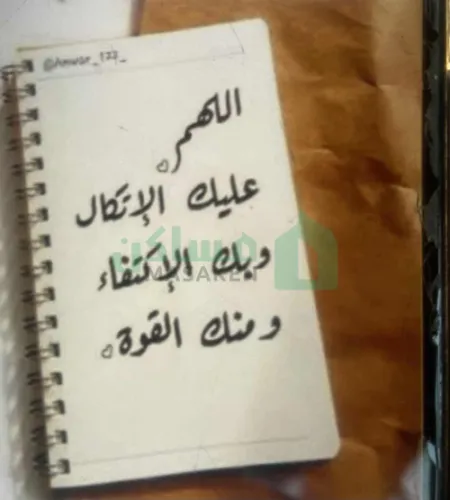 @Anwar_122_
اللهم
عليك الإتكال
وبك الإكتفاء
ومنك القوة
مساكن
MASAKEN